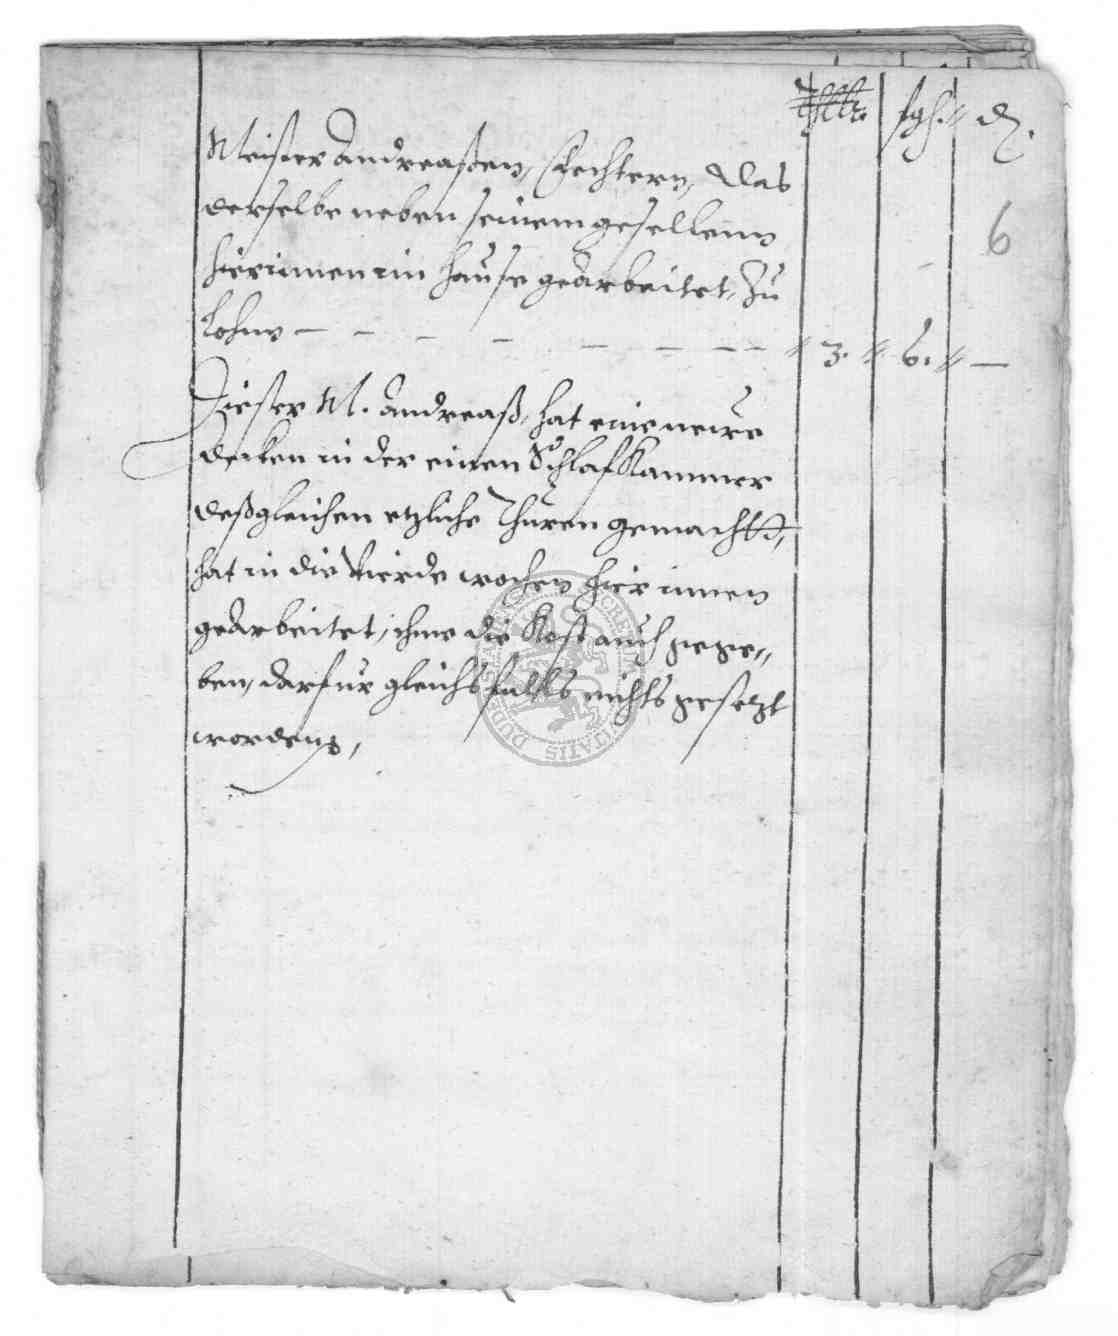 Thlr. sgh. // d.
6
Meister Andreaßen, Techtern, Das
derselbe neben seinem gesellenn
hierinnen im Hause gearbeitet, Zu
Lohnn — — — — — — — // 3. // 6. // —
Dieser M. Andreaß, hat eine neüe
decken in der einen Schlaf Kammer
deßgleichen etzliche Thüren gemacht,
hat in die vierde wochen hier innen
gearbeitet, ihme die Kost auch gege//
ben, darfur gleichsfalls nichts gesetzt
worden,